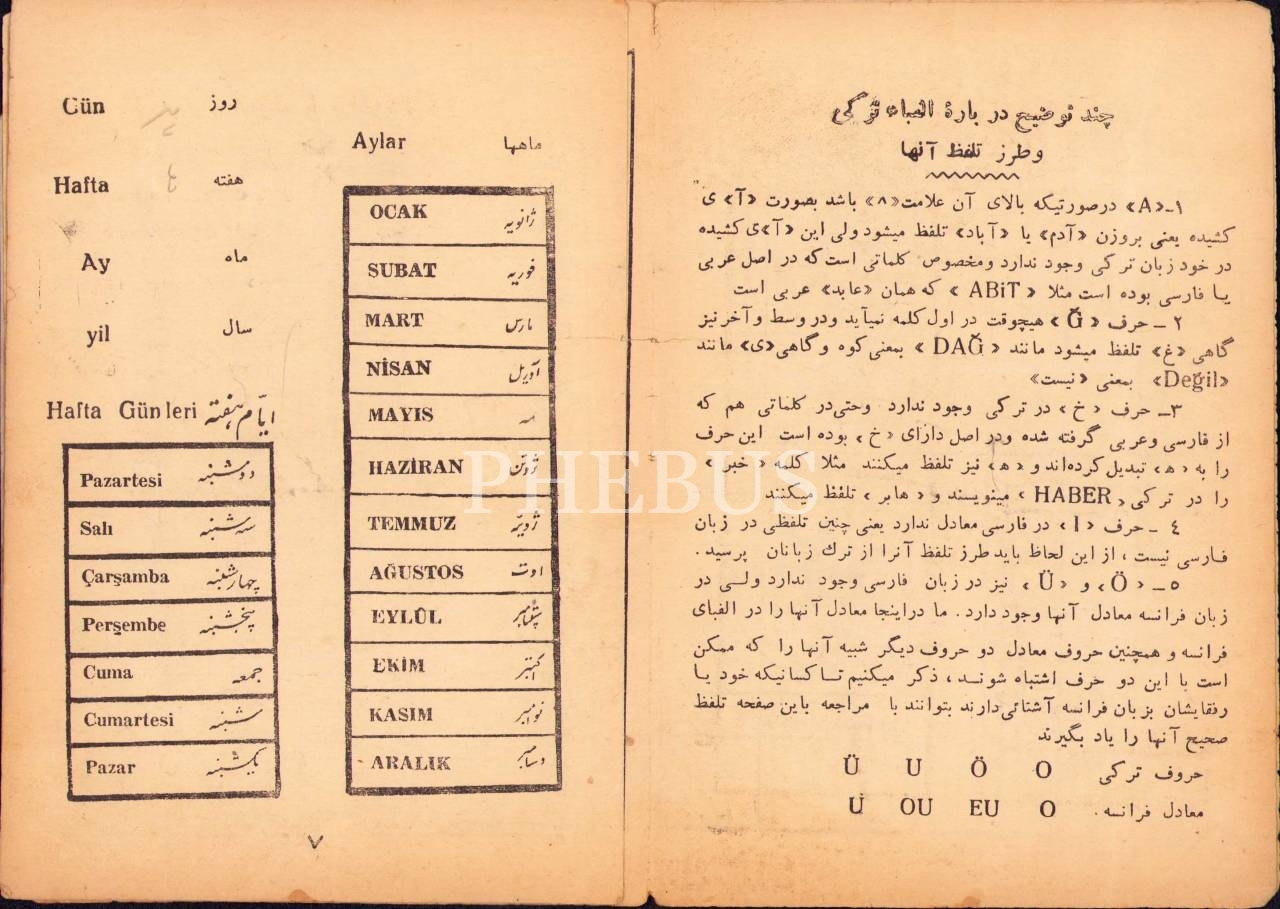 Gün روز
Hafta هفته
Ay ماه
yil سال
Hafta Günleri ایّام هفته
Pazartesi دوشنبه
Salı سه شنبه
Çarşamba چهارشنبه
Perşembe پنجشنبه
Cuma جمعه
Cumartesi شنبه
Pazar یکشنبه
Aylar ماهها
OCAK ژانویه
SUBAT فوریه
MART مارس
NİSAN آوریل
MAYIS مه
HAZİRAN ژوئن
TEMMUZ ژوئیه
AĞUSTOS اوت
EYLÛL سپتامبر
EKİM اکتبر
KASIM نوامبر
ARALIK دسامبر
۷
چند توضیح در بارهٔ الفباء ترکی
وطرز تلفظ آنها
۱ــ«A» درصورتیکه بالای آن علامت«۸» باشد بصورت «آ» ی
کشیده یعنی بروزن «آدم» یا «آباد» تلفظ میشود ولی این «آ»ی کشیده
در خود زبان ترکی وجود ندارد ومخصوص کلماتی است که در اصل عربی
یا فارسی بوده است مثلا « ABiT » که همان «عابد» عربی است
۲ ــ حرف « Ğ » هیچوقت در اول کلمه نمیآید ودر وسط و آخر نیز
گاهی «غ» تلفظ میشود مانند « DAĞ » بمعنی کوه و گاهی «ی» مانند
«Değil» بمعنی «نیست»
۳ــ حرف « خ » در ترکی وجود ندارد وحتی در کلماتی هم که
از فارسی وعربی گرفته شده ودر اصل دارای « خ » بوده است این حرف
را به « ه » تبدیل کرده‌اند و « ه » نیز تلفظ میکنند مثلا کلمه « خبر »
را در ترکی « HABER » مینویسند و « هابر » تلفظ میکنند
٤ ــ حرف « I » در فارسی معادل ندارد یعنی چنین تلفظی در زبان
فارسی نیست ، از این لحاظ باید طرز تلفظ آنرا از ترك زبانان پرسید .
۵ــ « Ö » و « Ü » نیز در زبان فارسی وجود ندارد ولی در
زبان فرانسه معادل آنها وجود دارد . ما دراینجا معادل آنها را در الفبای
فرانسه و همچنین حروف معادل دو حروف دیگر شبیه آنها را که ممکن
است با این دو حرف اشتباه شوند ، ذکر میکنیم تا کسانیکه خود یا
رفقایشان بزبان فرانسه آشنائی دارند بتوانند با مراجعه باین صفحه تلفظ
صحیح آنها را یاد بگیرند
حروف ترکی O Ö U Ü
معادل فرانسه . O EU OU U
PHEBUS